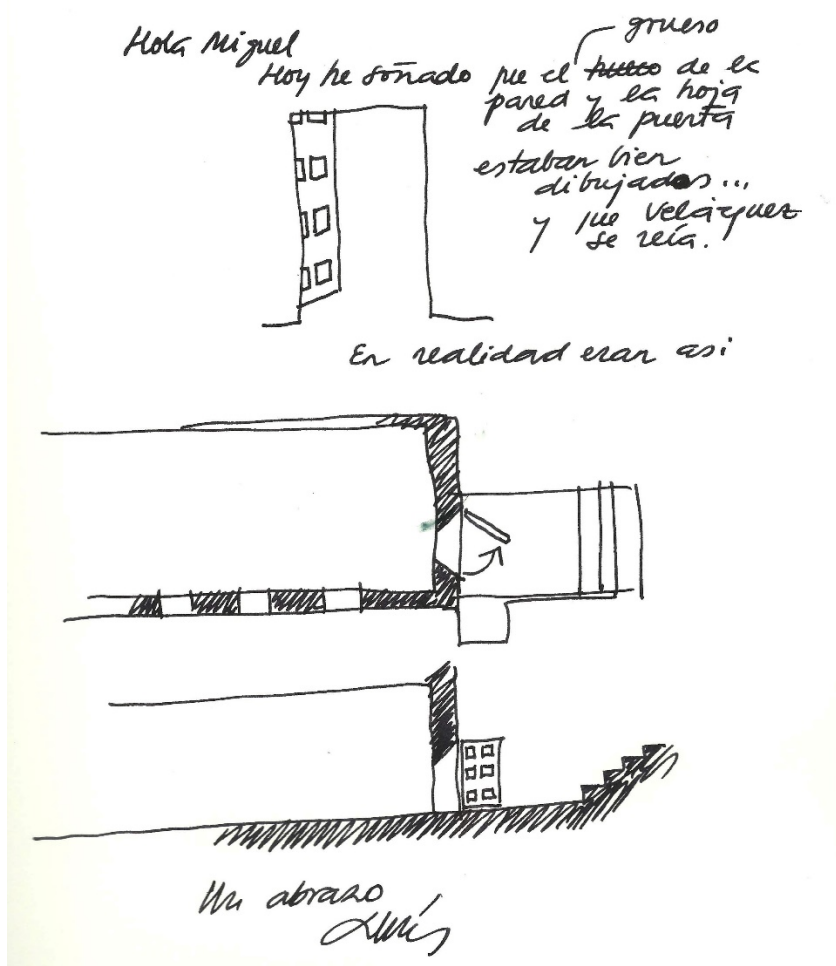 Hola Miguel
grueso
Hoy he soñado que el hueco de la
pared y la hoja
de la puerta
estaban bien
dibujados...
y que Velázquez
se reía.
En realidad eran asi
Un abrazo
Luis